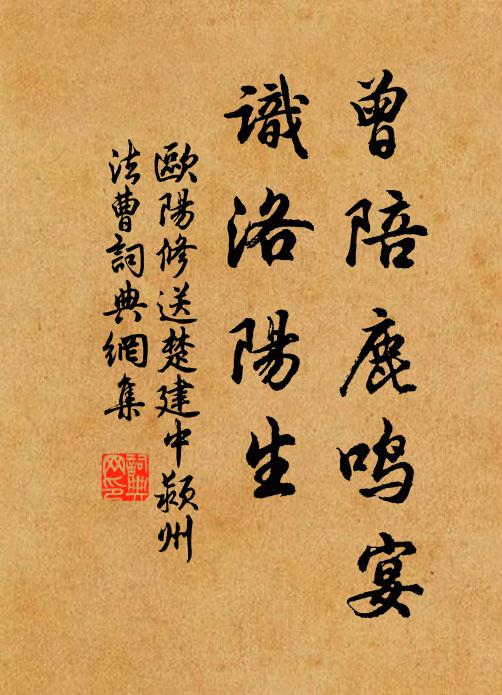 曾陪鹿鳴宴
識洛陽生
歐陽修送楚建中潁州
法曹詞典網集
詞典
网印